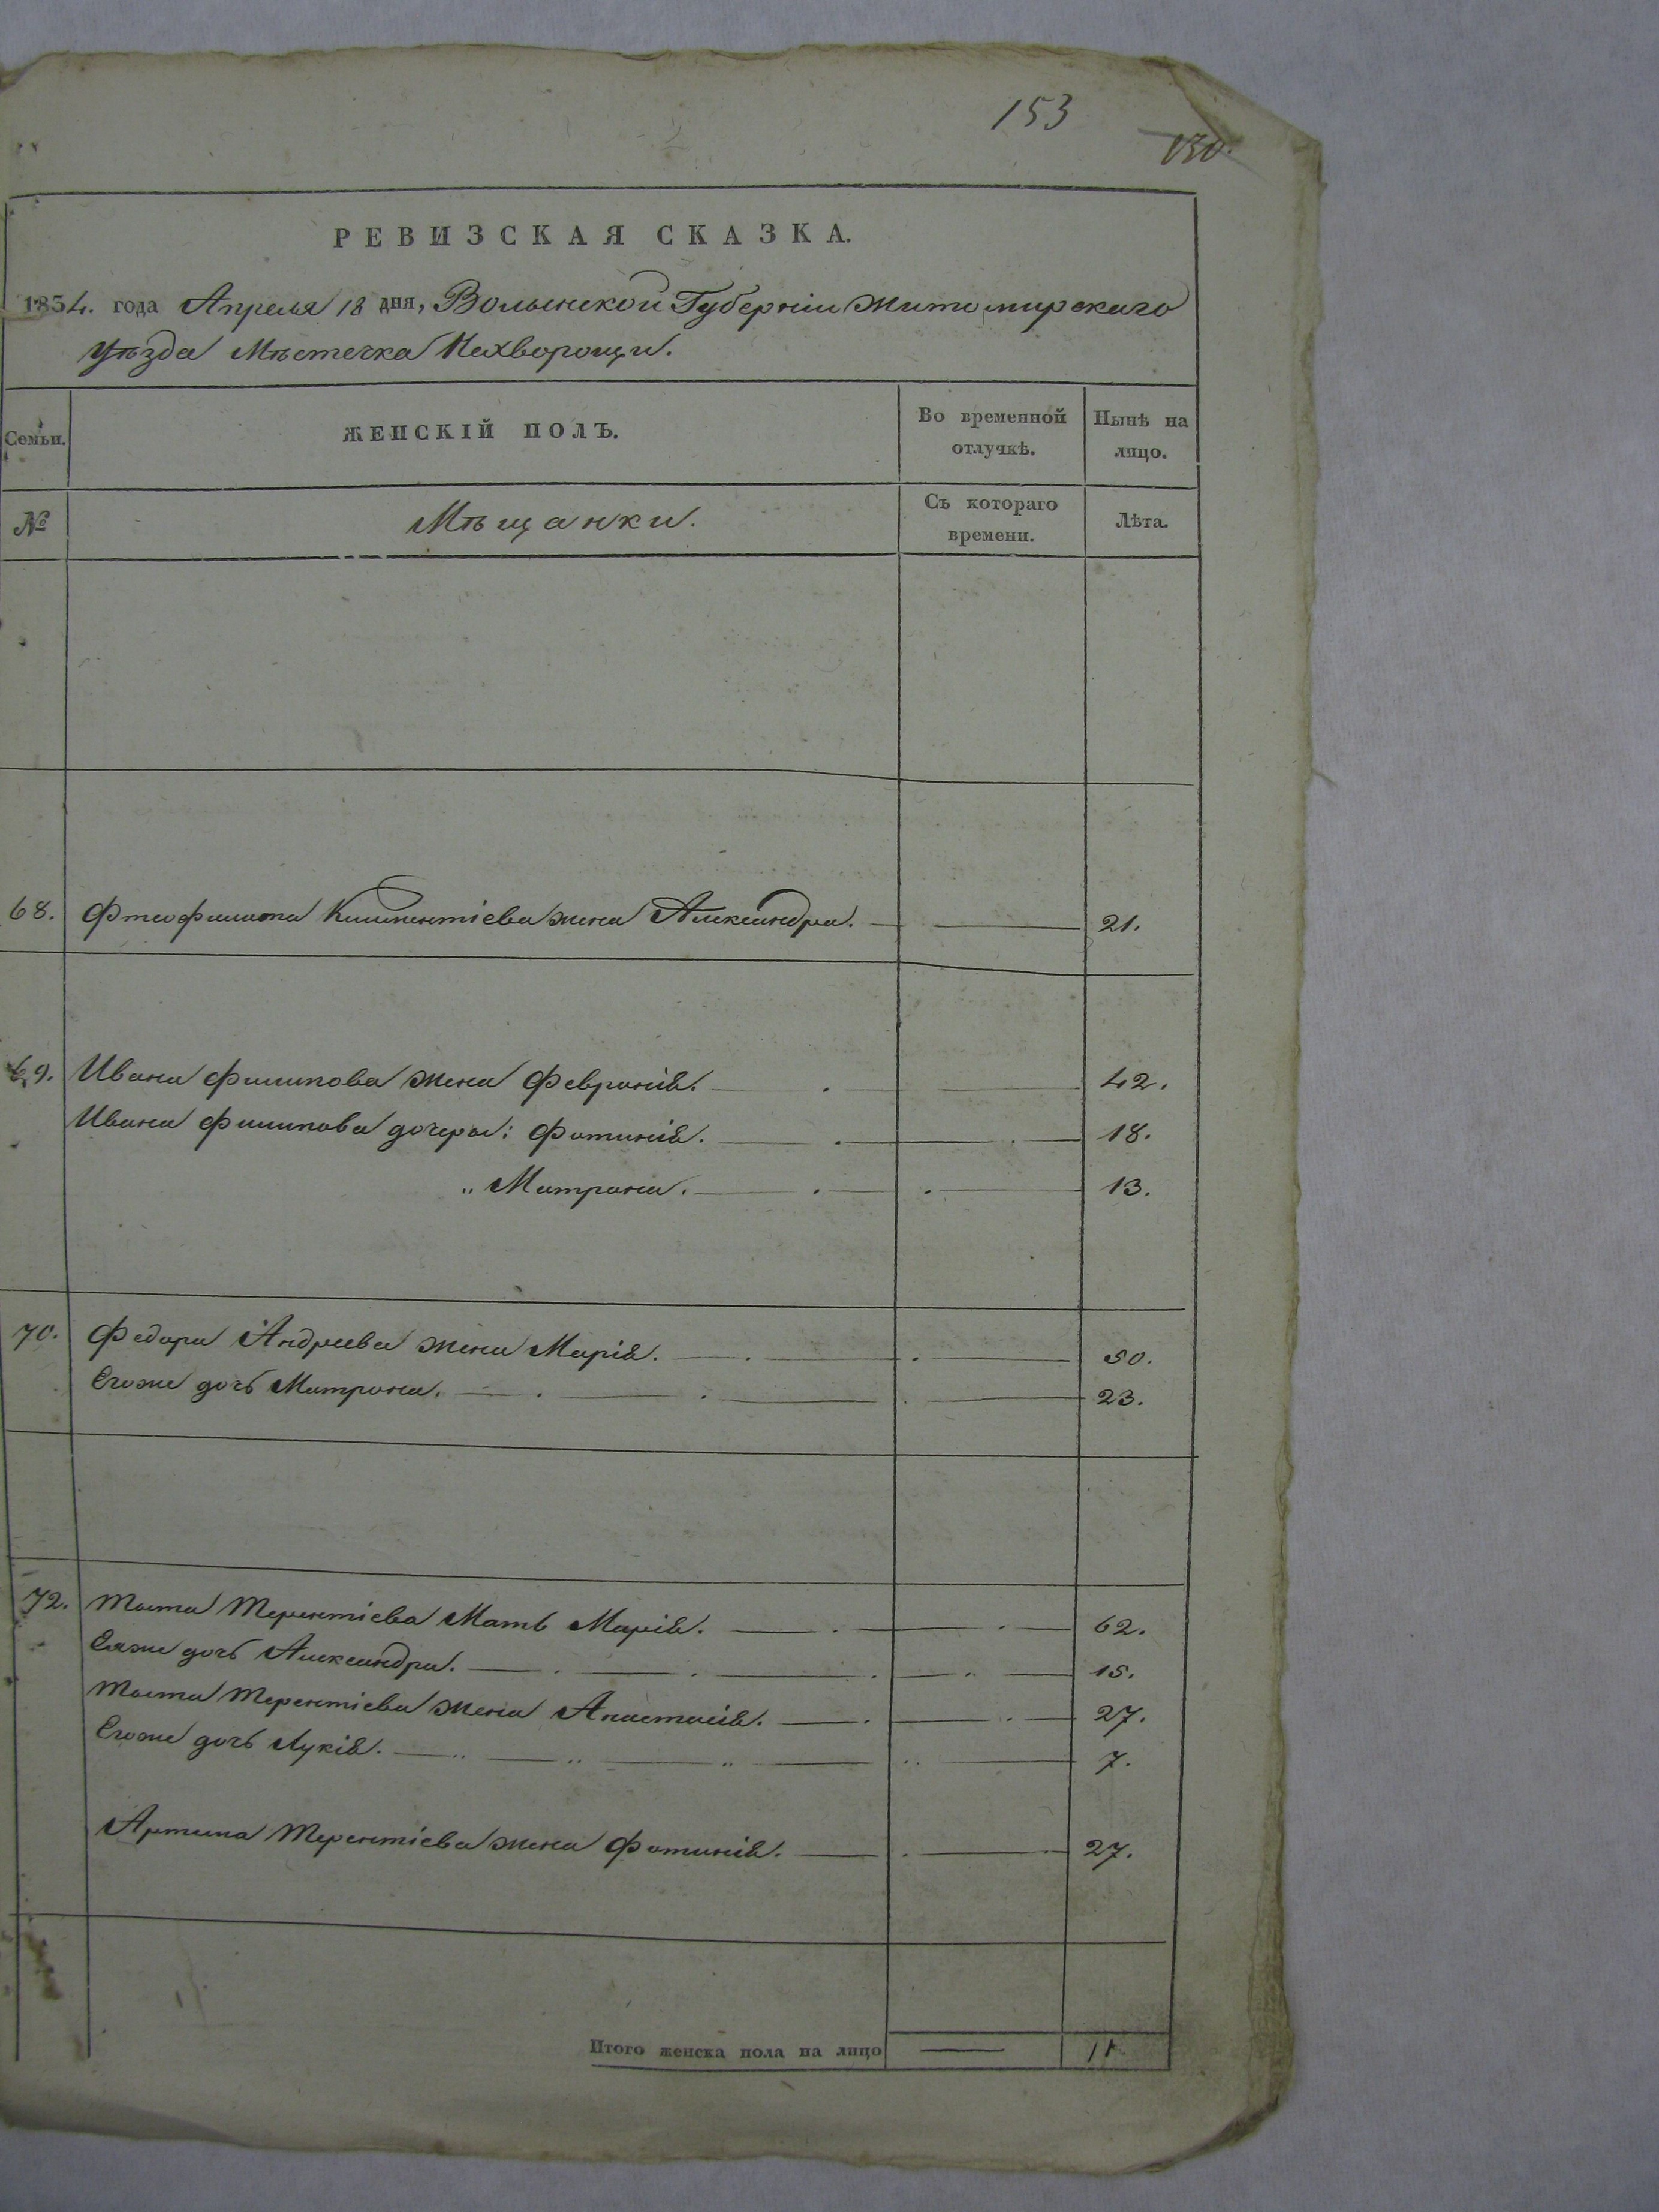 153
130.
РЕВИЗСКАЯ СКАЗКА.
1854. года Апреля 18 дня, Волынской Губерніи Житомирскаго
Уѣзда Мѣстечка Нехворощи.
Семьи. ЖЕНСКІЙ ПОЛЪ. Во временной отлучкѣ. Нынѣ на лицо.
№ Мѣщанки. Съ котораго времени. Лѣта.
68. жена Александра. 21.
69. Ивана Филипова жена Февронія. 42.
Ивана Филипова дочеры: Фотинія. 18.
„ Матрона. 13.
70. Федора Андреева жена Марія. 50.
Егоже дочь Матрона. 23.
72. Терентіева Мать Марія. 62.
Еяже дочь Александра. 15.
Терентіева жена Анастасія. 27.
Егоже дочь Лукія. 7.
Артема Терентіева жена Фотинія. 27.
Итого женска пола на лицо 11